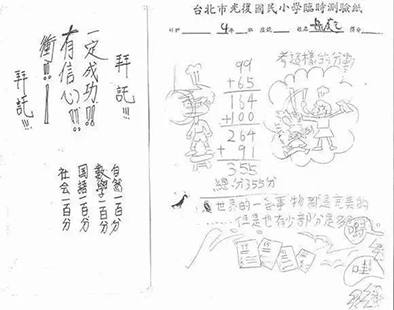 拜託!!!
一定成功!!!
有信心!!!
衝!!!
拜託!!!
自然一百分
數學一百分
國語一百分
社會一百分
台北市光復國民小學臨時測驗紙
4年 班 座號 姓名
得分
99
+65
164
+100
264
+91
355
總分355分
考這樣的分數
世界的一些事物都是完美的
但是也有少部分是
哇